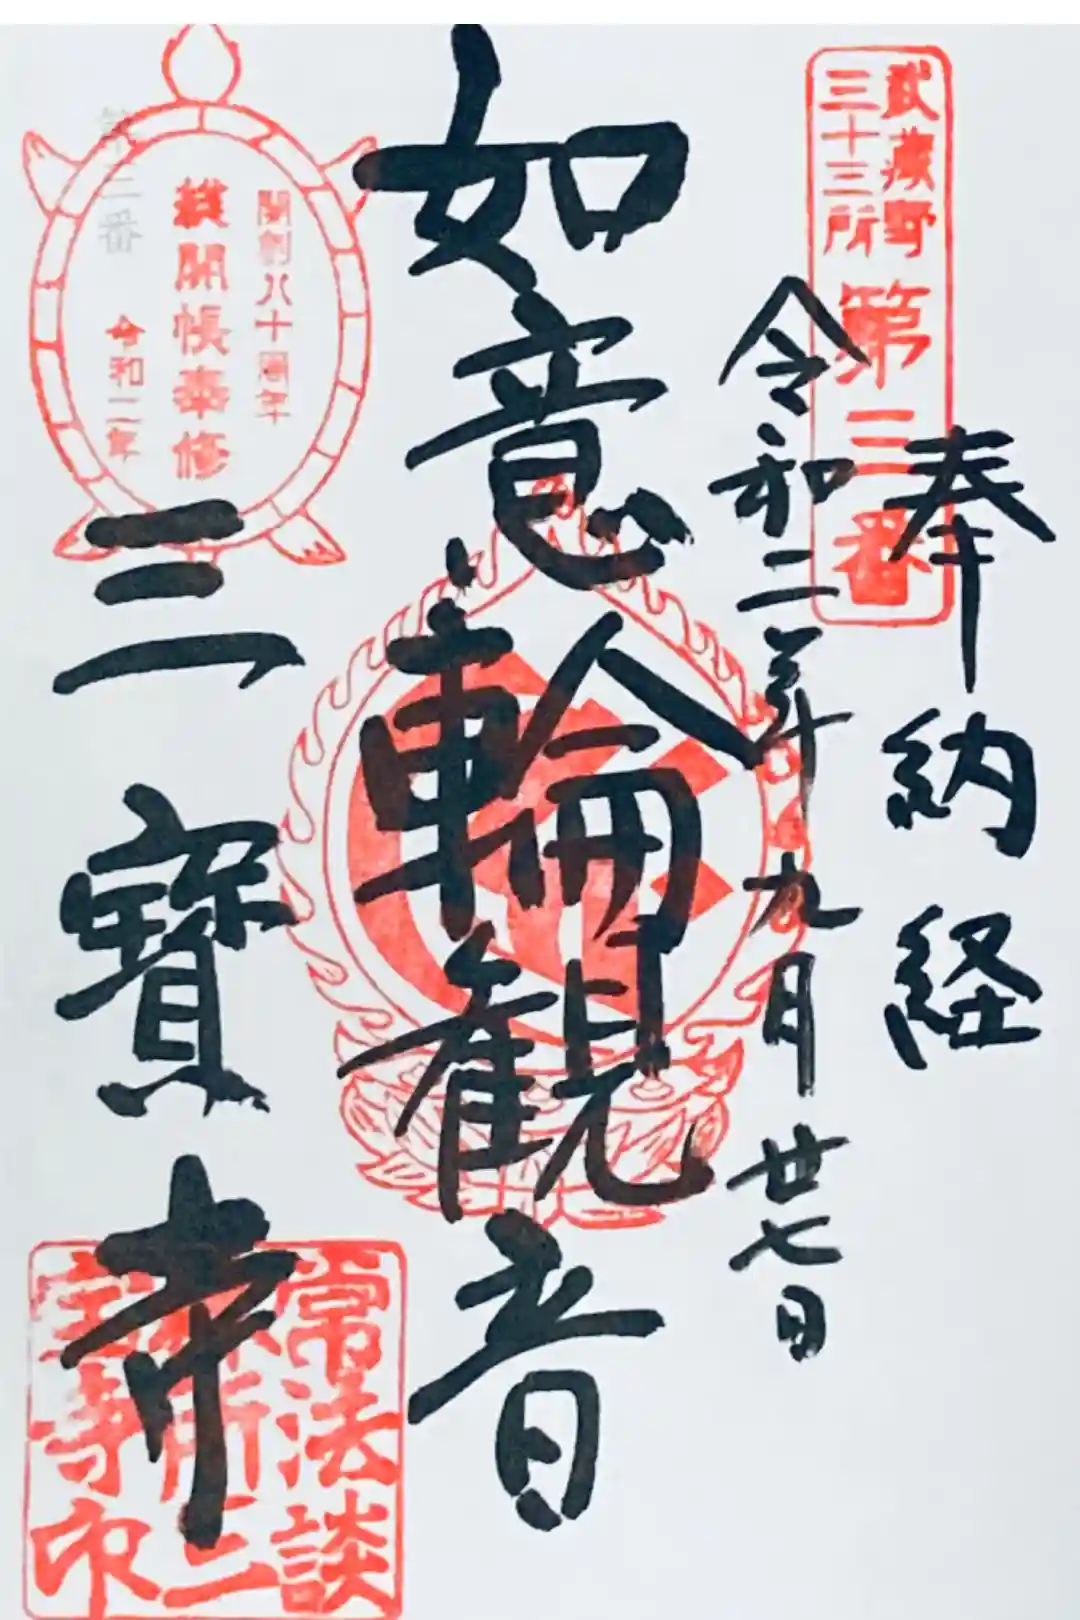 奉納経
武蔵野
三十三所
第三番
令和二年九月廿七日
如意輪観音
開創八十周年
総開帳奉修
令和二年
第三番
三寳寺
常法談
林所三
宝寺印